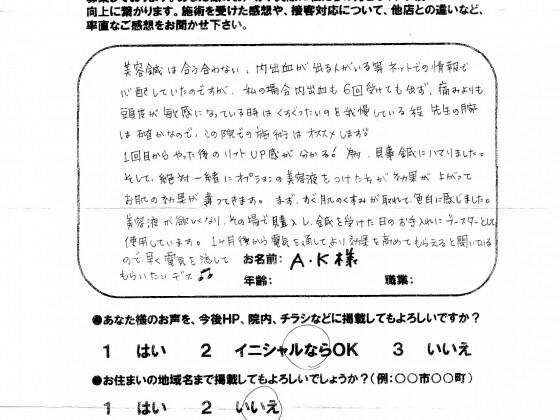 向上に繋がります。施術を受けた感想や、接客対応について、他店との違いなど、
率直なご感想をお聞かせ下さい。
美容鍼は合う合わない、内出血が出る人がいる等ネットでの情報で
心配していたのですが、私の場合内出血も6回受けても出ず、痛みよりも
頭皮が敏感になっている時はくすぐったいのを我慢している程 先生の腕
は確かなので、この院での施術はオススメします!
1回目からやった後のリフトUP感が分かる! 為、見事鍼にハマりました。
そして、絶対一緒にオプションの美容液をつけた方が効果が上がって
お肌の効果が違ってきます。まず、すぐ肌のくすみが取れて、色白に感じました。
美容液が欲しくなり、その場で購入し、鍼を受けた日のお手入れにブースターとして
使用しています。1ヶ月後から電気を通してより効果を高めてもらえると聞いている
ので早く電気を流して
もらいたいデス♫
お名前: A・K様
年齢: 職業:
●あなた様のお声を、今後HP、院内、チラシなどに掲載してもよろしいですか?
1 はい 2 イニシャルならOK 3 いいえ
●お住まいの地域名まで掲載してもよろしいでしょうか?(例:○○市○○町)
1 はい 2 いいえ